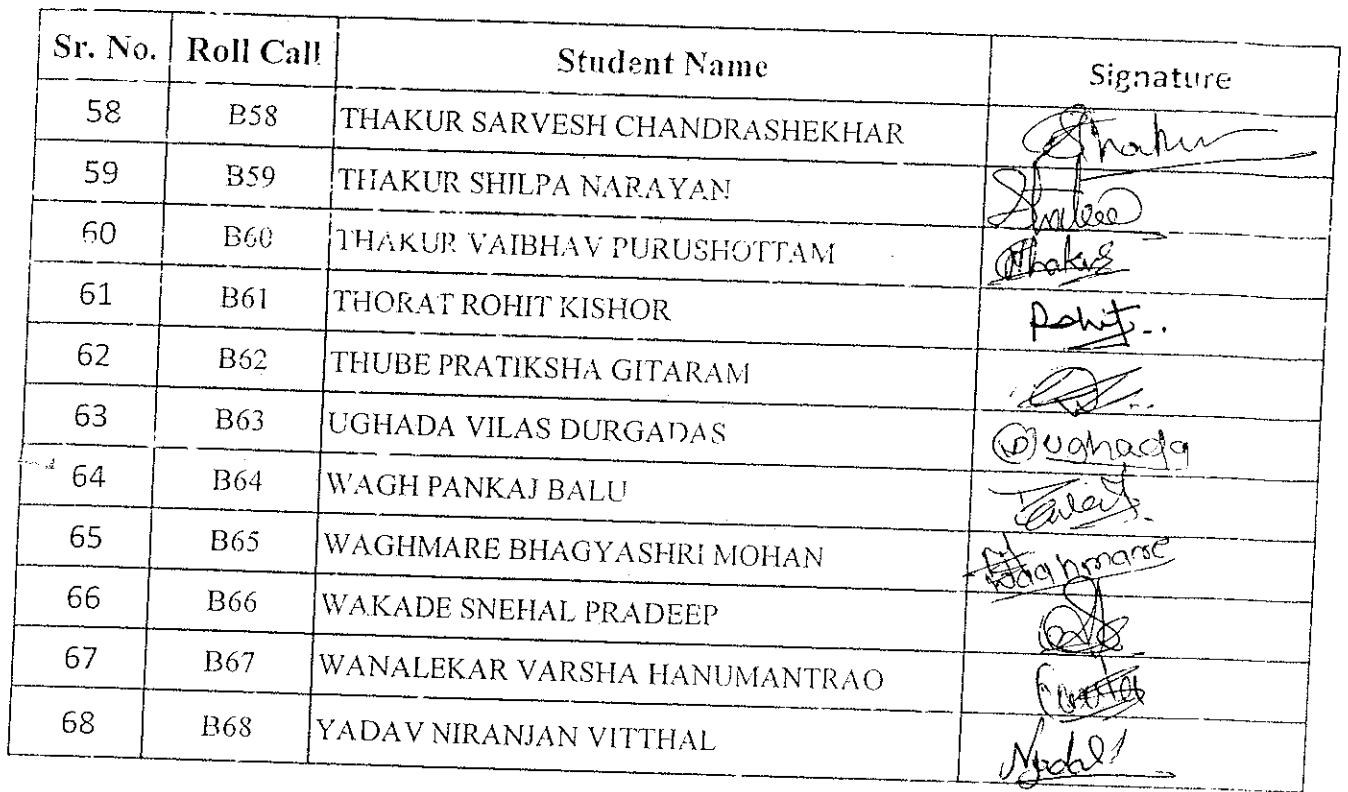 Sr. No. Roll Call Student Name Signature
58 B58 THAKUR SARVESH CHANDRASHEKHAR Thakur
59 B59 THAKUR SHILPA NARAYAN
60 B60 THAKUR VAIBHAV PURUSHOTTAM Thakur
61 B61 THORAT ROHIT KISHOR Rohit
62 B62 THUBE PRATIKSHA GITARAM
63 B63 UGHADA VILAS DURGADAS ughada
64 B64 WAGH PANKAJ BALU
65 B65 WAGHMARE BHAGYASHRI MOHAN Waghmare
66 B66 WAKADE SNEHAL PRADEEP
67 B67 WANALEKAR VARSHA HANUMANTRAO
68 B68 YADAV NIRANJAN VITTHAL